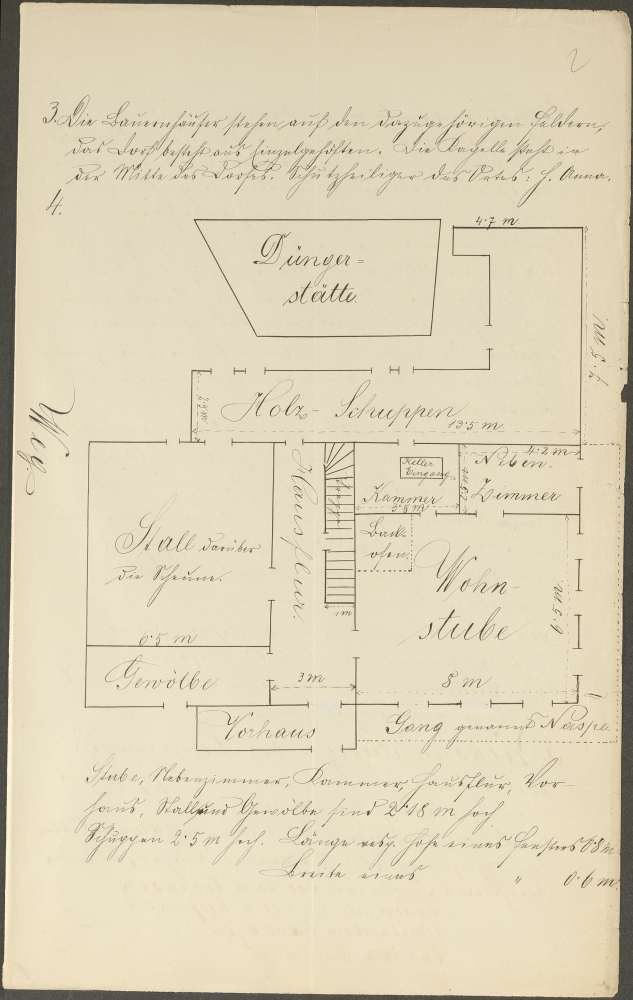 2
3. Die Bauernhäuser stehen auf den dazugehörigen Feldern,
das Dorf besteht aus Einzelgehöften. Die Kapelle steht in
der Mitte des Dorfes. Schutzheiliger des Ortes: h. Anna.
4.
4·7 m
Dünger-
stätte.
7·5 m
Weg
Holz-Schuppen
13·5 m
4·2 m
Keller
Eingang
Neben-
Zimmer
Kammer
Hausflur.
Treppe
Back-
ofen
Stall darüber
die Scheune.
Wohn-
stube
1m
6·5 m
Gewölbe
3m
8 m
Vorhaus
Gang genannt
Stube, Nebenzimmer, Kammer, Hausflur, Vor-
haus, Stall und Gewölbe sind 2·18 m hoch
Schuppen 2·5 m hoch. Länge resp. Höhe eines Fensters 0·8 m
Breite eines " 0·6 m.